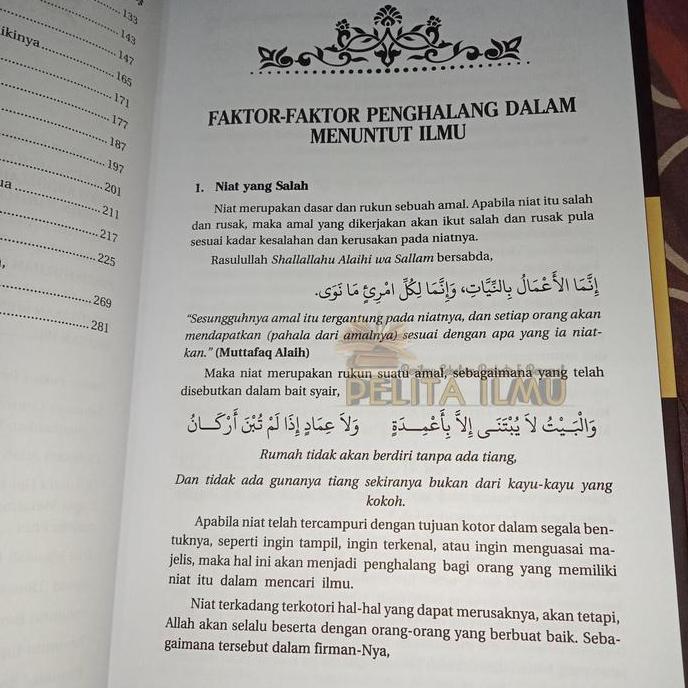 133
143
ikinya 147
165
171
177
187
197
201
ua 211
217
225
269
281
FAKTOR-FAKTOR PENGHALANG DALAM
MENUNTUT ILMU
1. Niat yang Salah
Niat merupakan dasar dan rukun sebuah amal. Apabila niat itu salah
dan rusak, maka amal yang dikerjakan akan ikut salah dan rusak pula
sesuai kadar kesalahan dan kerusakan pada niatnya.
Rasulullah Shallallahu Alaihi wa Sallam bersabda,
إِنَّمَا الأَعْمَالُ بِالنِّيَّاتِ، وَإِنَّمَا لِكُلِّ امْرِئٍ مَا نَوَى.
“Sesungguhnya amal itu tergantung pada niatnya, dan setiap orang akan
mendapatkan (pahala dari amalnya) sesuai dengan apa yang ia niat-
kan.” (Muttafaq Alaih)
Maka niat merupakan rukun suatu amal, sebagaimana yang telah
disebutkan dalam bait syair,
PELITA ILMU
وَالْبَيْتُ لاَ يُبْتَنَى إِلاَّ بِأَعْمِدَةٍ وَلاَ عِمَادٍ إِذَا لَمْ تُبْنَ أَرْكَانُ
Rumah tidak akan berdiri tanpa ada tiang,
Dan tidak ada gunanya tiang sekiranya bukan dari kayu-kayu yang
kokoh.
Apabila niat telah tercampuri dengan tujuan kotor dalam segala ben-
tuknya, seperti ingin tampil, ingin terkenal, atau ingin menguasai ma-
jelis, maka hal ini akan menjadi penghalang bagi orang yang memiliki
niat itu dalam mencari ilmu.
Niat terkadang terkotori hal-hal yang dapat merusaknya, akan tetapi,
Allah akan selalu beserta dengan orang-orang yang berbuat baik. Seba-
gaimana tersebut dalam firman-Nya,